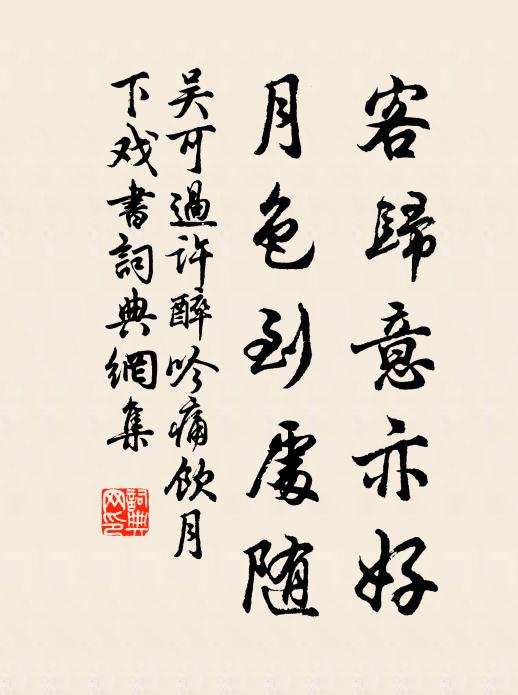 客歸意亦好
月色到處随
吴可過許醉吟痛飲月
下戏書詞典網集
詞典
网印